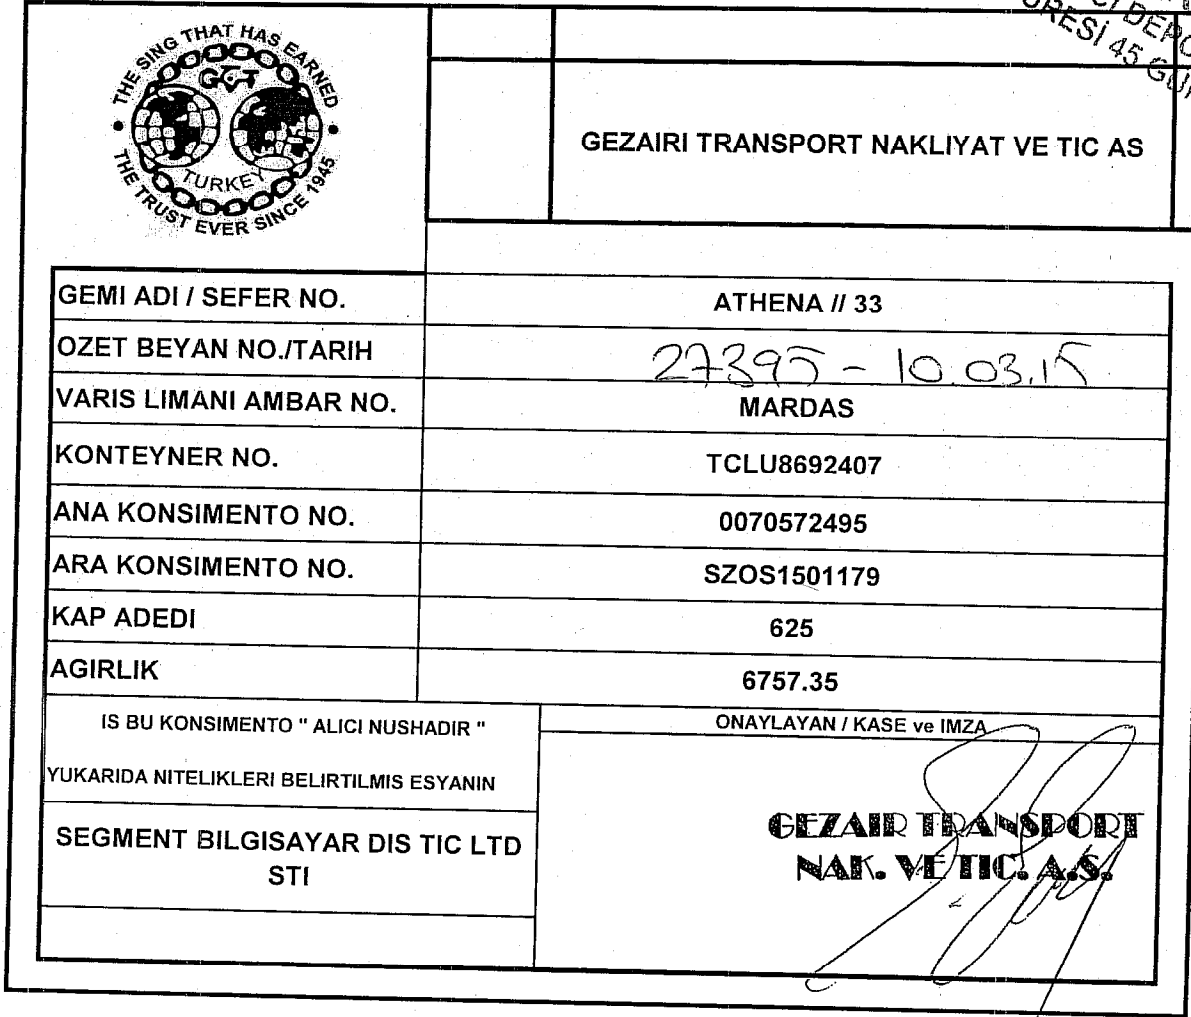 THE SING THAT HAS EARNED
GCT
TURKEY
THE TRUST EVER SINCE 1945
DEPO
45
GEZAIRI TRANSPORT NAKLIYAT VE TIC AS
GEMI ADI / SEFER NO. ATHENA // 33
OZET BEYAN NO./TARIH 27395 - 10.03.15
VARIS LIMANI AMBAR NO. MARDAS
KONTEYNER NO. TCLU8692407
ANA KONSIMENTO NO. 0070572495
ARA KONSIMENTO NO. SZOS1501179
KAP ADEDI 625
AGIRLIK 6757.35
IS BU KONSIMENTO " ALICI NUSHADIR "
YUKARIDA NITELIKLERI BELIRTILMIS ESYANIN
SEGMENT BILGISAYAR DIS TIC LTD
STI
ONAYLAYAN / KASE ve IMZA
GEZAIR TRANSPORT
NAK. VE TIC. A.S.